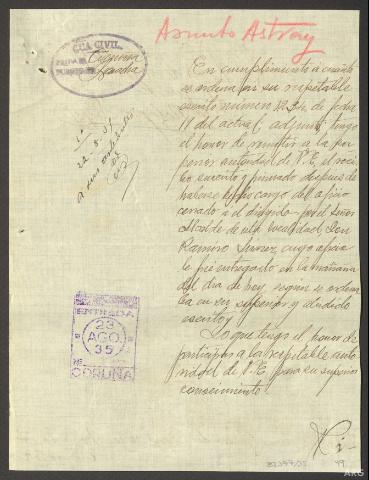 Asunto Astray
GUA CIVIL
En cumplimiento a cuanto
se ordena por su respetable
escrito número
11 del actual, adjunto tengo
el honor de remitir a la su
perior autoridad de V.E. el reci
bo suscrito y firmado despues de
haberse hecho cargo del oficio
cerrado a el dirigido por el Señor
Alcalde de esta localidad, Don
Ramiro Suarez, cuyo oficio
le fue entregado en la mañana
del dia de hoy, segun se ordena
ba en su superior y aludido
escrito.
Lo que tengo el honor de
participar a la respetable auto
ridad de V.E. para su superior
conocimiento.
a sus antecedentes
ENTRADA
23
AGO.
35
CORUÑA
49
ARG